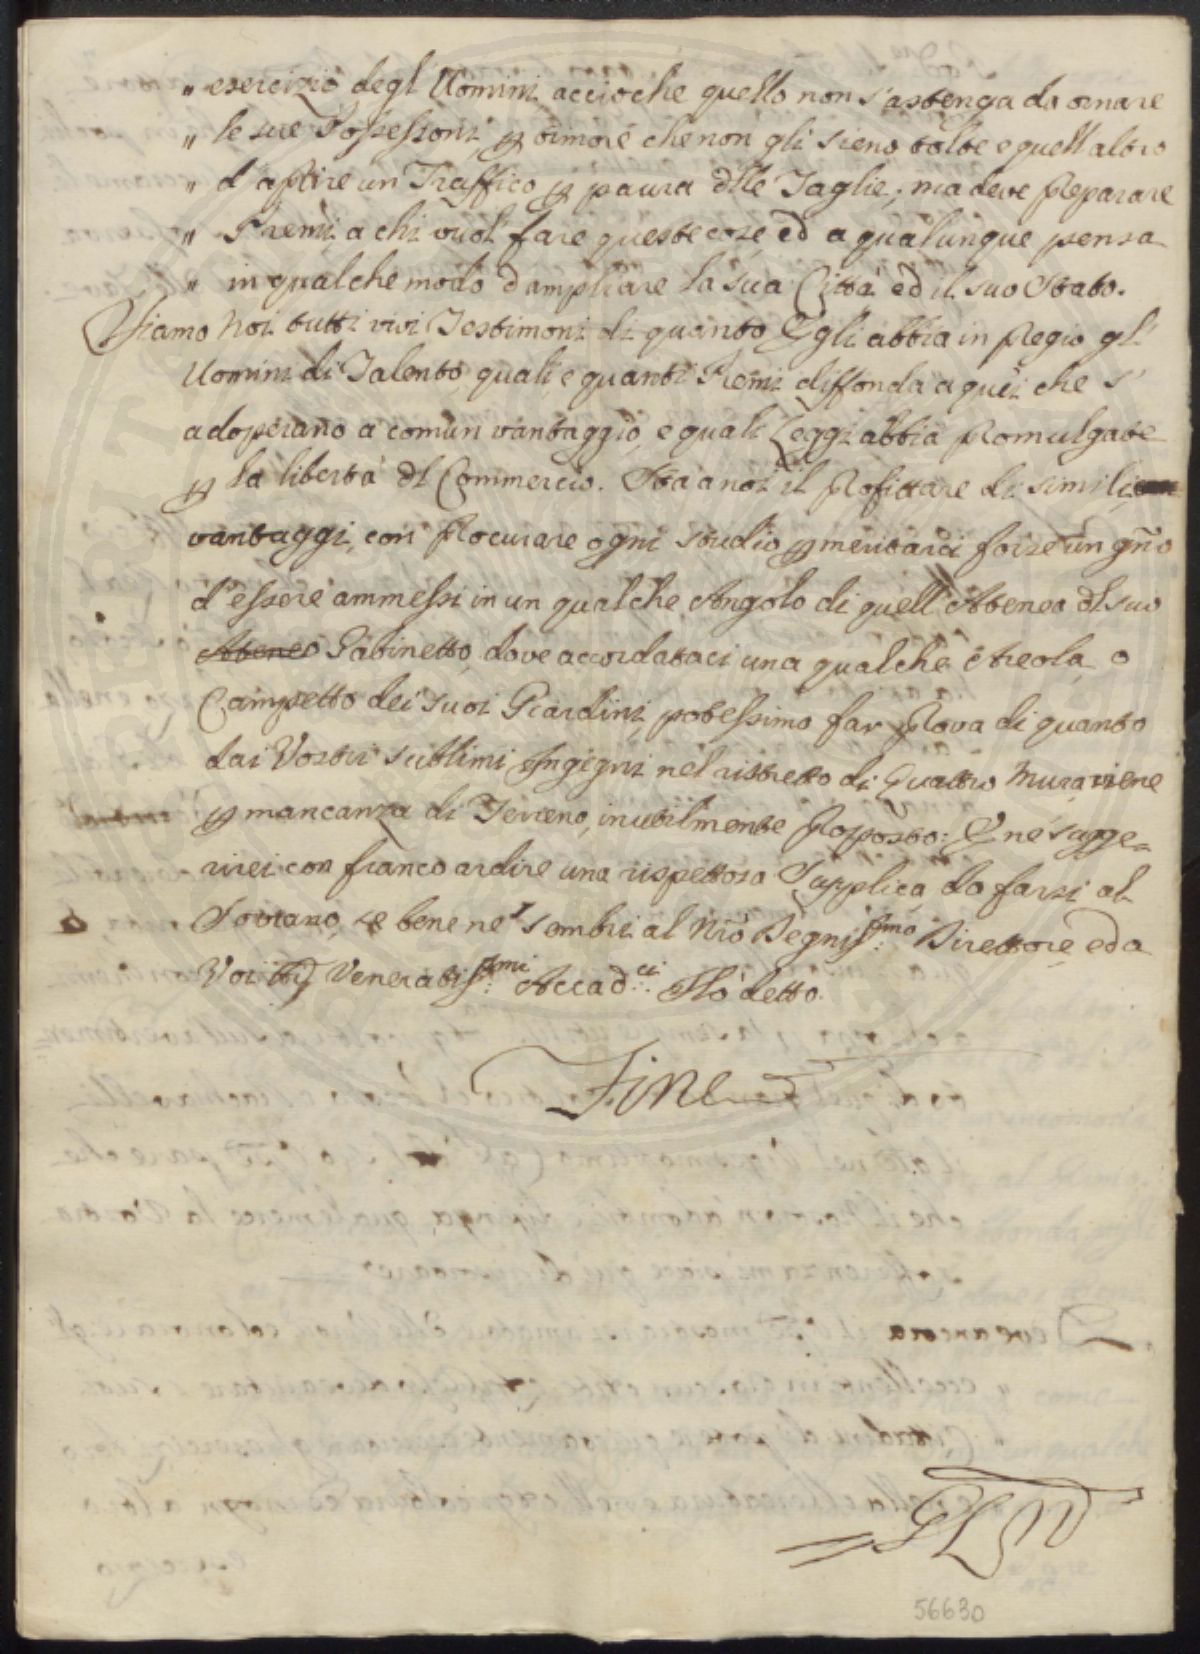 „ esercizio degl'Uomini acciochè quello non s'astenga da ornare
„ le sue Possessioni, p timore che non gli sieno tolte e quell'altro
„ d'aprire un Traffico p paura dlle Taglie; ma deve Preparare
„ Premj a chi vuol fare queste cose, ed a qualunque pensa
„ in qualche modo d'ampliare la sua Città ed il suo Stato.
Siamo Noi tutti vivi Testimoni di quanto Egli abbia in Pregio gl'
Uomini di Talento, quali, e quanti Premi diffonda a quei che s'
adoperano a comun vantaggio, e quali Leggi abbia Promulgate
p la libertà dl Commercio. Sta a noi il Profittare di simili
vantaggi, con Procurare ogni studio p meritarci forse un gno
d'essere ammessi in un qualche Angolo di quell'Ateneo dl suo
Ateneo Gabinetto, dove accordataci una qualche Areola, o
Campetto dei suoi Giardini, potessimo far Prova di quanto
dai Vostri sublimi Ingegni nel ristretto di Quattro Mura, viene
p mancanza di Terreno, inutilmente Proposto: E ne sugge=
rirei con franco ardire una rispettosa Supplica da farsi al
Sovrano, se bene ne sembri al Nro Degnissmo Direttore, ed a
Voi tti Venerabissmi Accadci. Ho detto.
Fine
56630